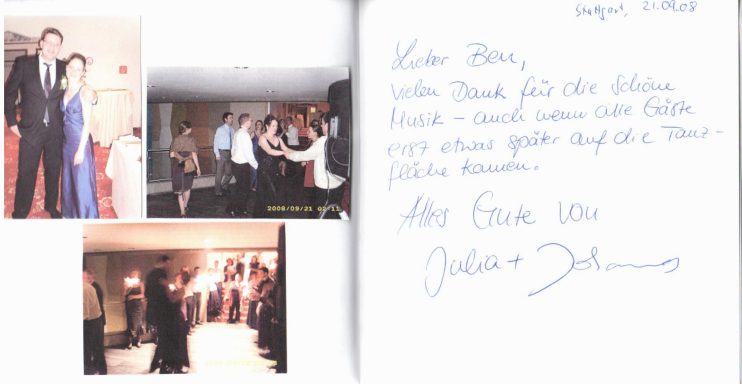 Stuttgart, 21.09.08
Lieber Ben,
vielen Dank für die schöne
Musik – auch wenn alle Gäste
erst etwas später auf die Tanz-
fläche kamen.
Alles Gute von
Julia + Johannes
2008/09/21 02:11